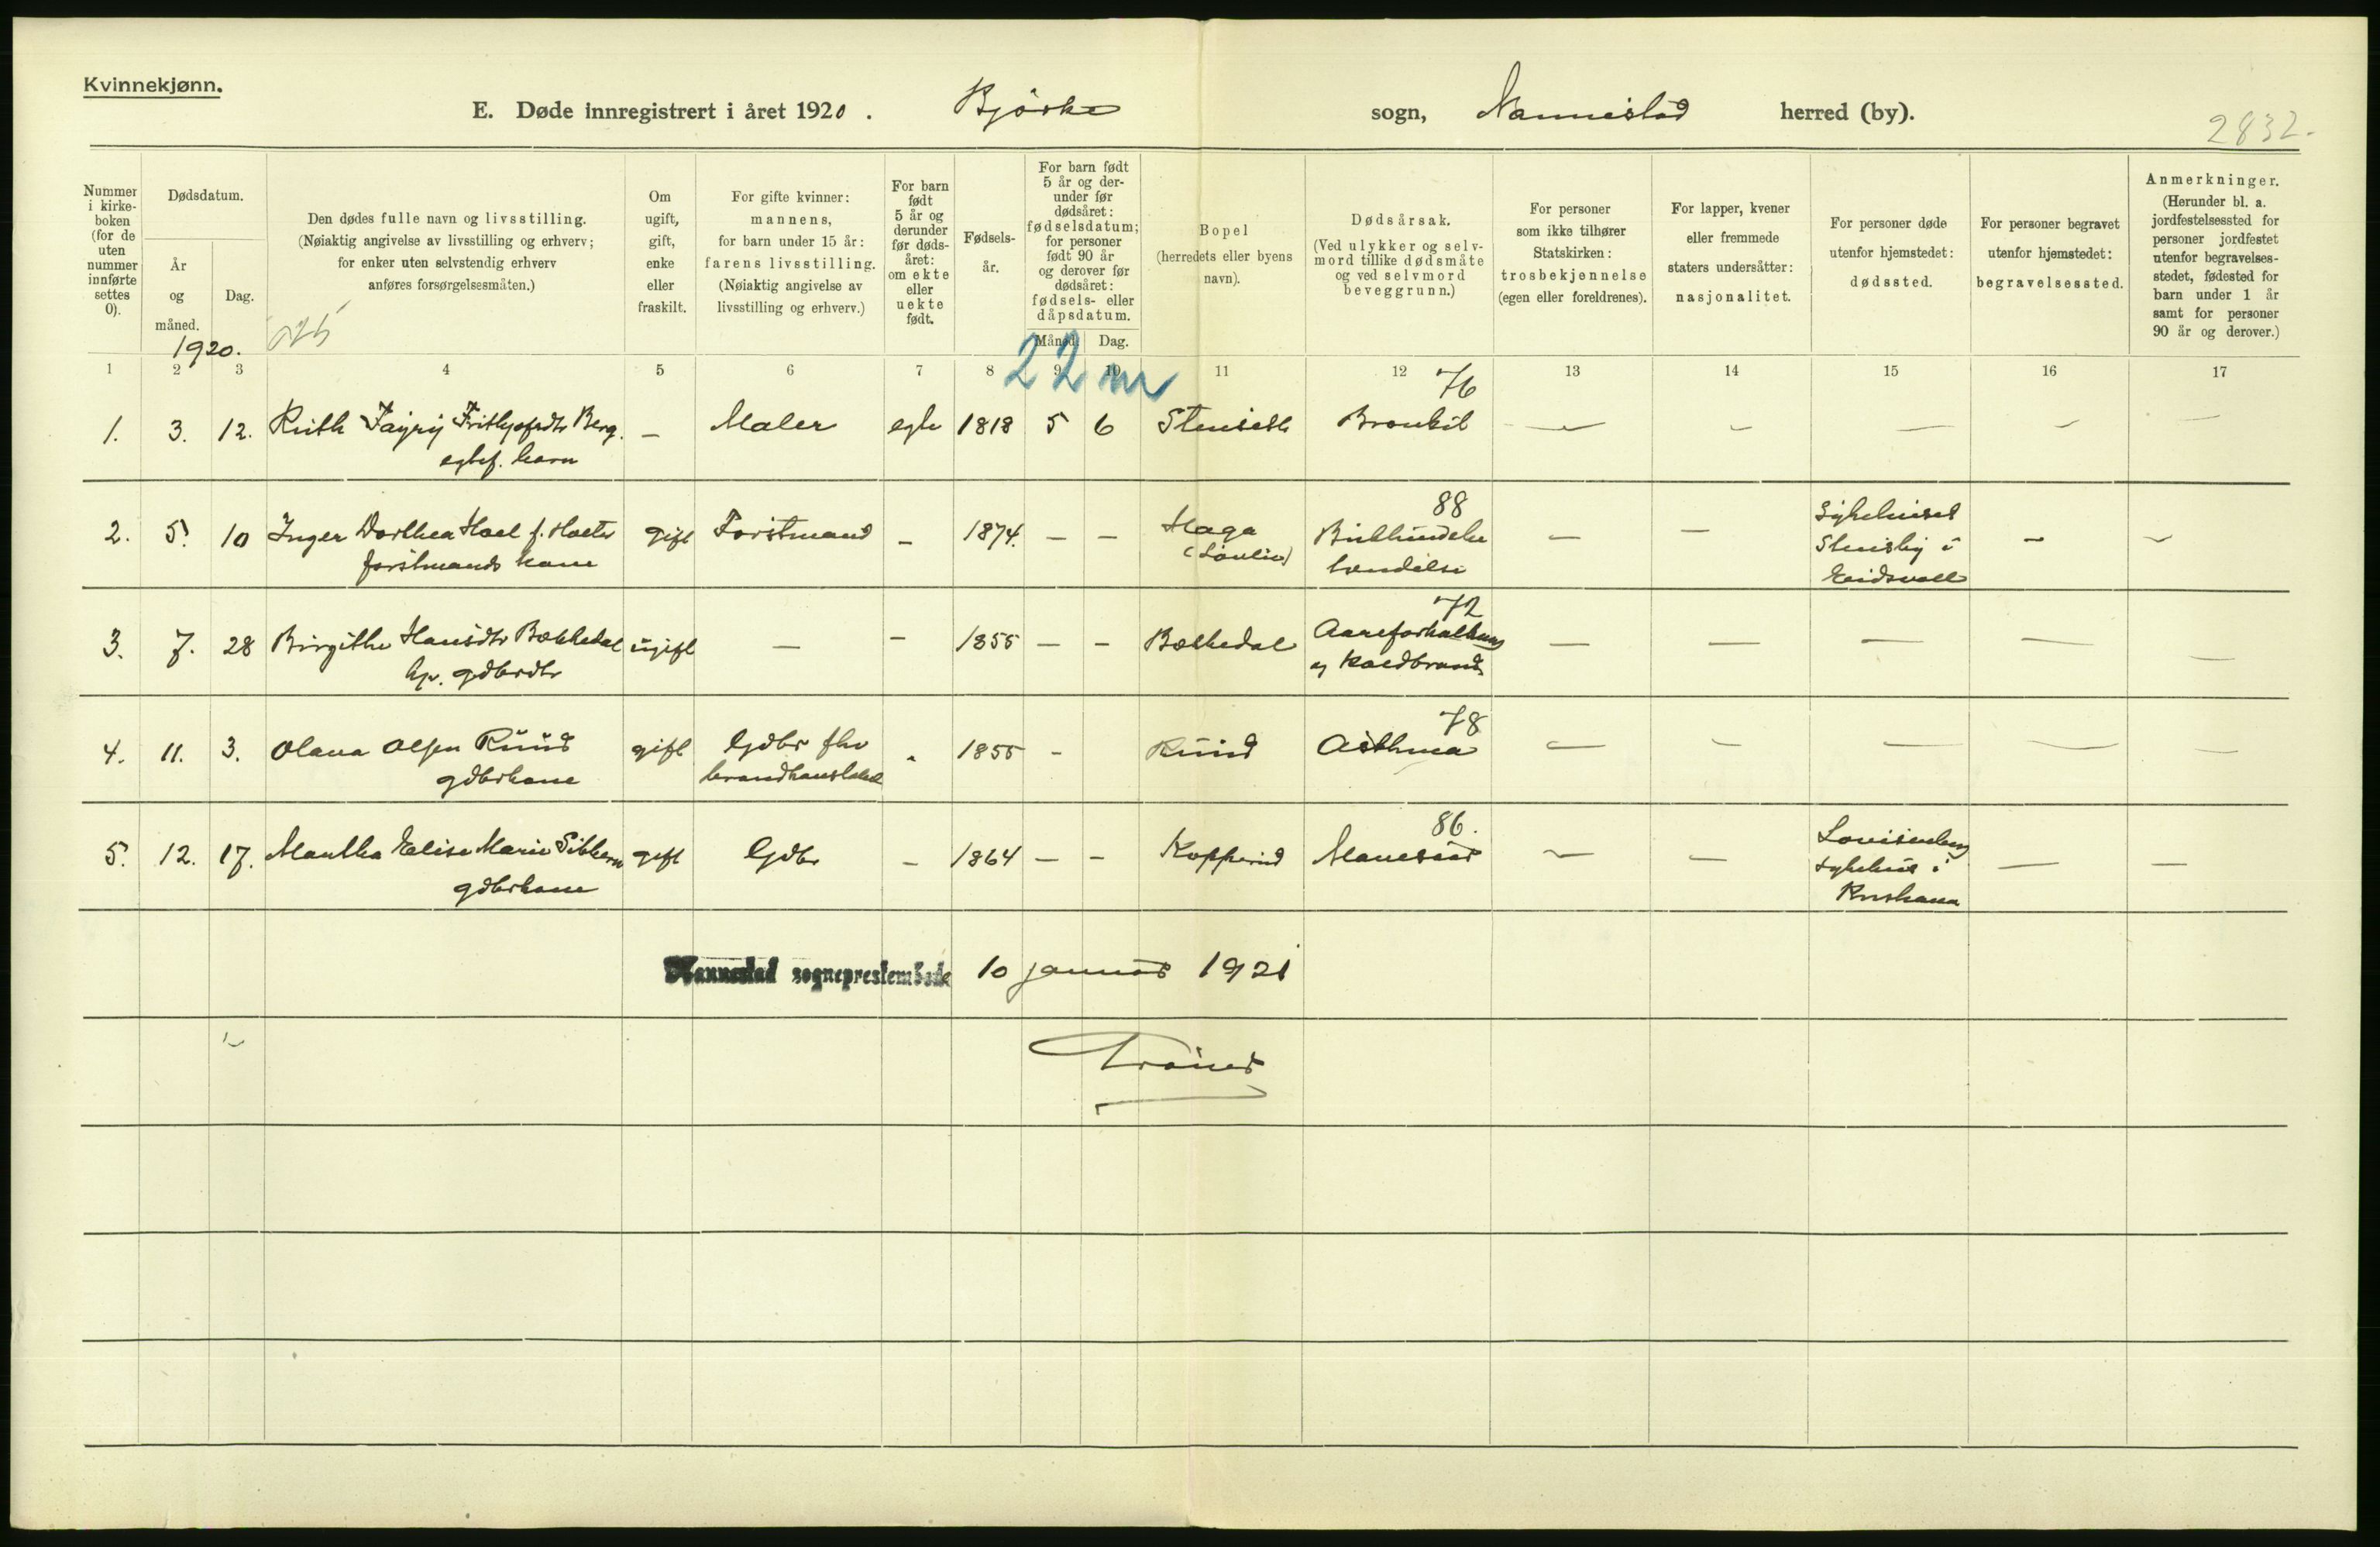 Kvinnekjønn.
E. Døde innregistrert i året 1920. Bjørke sogn, Nannestad herred (by).
2832.
Nummer i kirkeboken (for de uten nummer innførte settes 0).
Dødsdatum.
År og måned.
Dag.
1920.
Den dødes fulle navn og livsstilling.
(Nøiaktig angivelse av livsstilling og erhverv;
for enker uten selvstendig erhverv
anføres forsørgelsesmåten.)
Om ugift, gift, enke eller fraskilt.
For gifte kvinner:
mannens,
for barn under 15 år:
farens livsstilling.
(Nøiaktig angivelse av
livsstilling og erhverv.)
For barn født 5 år og derunder før dødsåret: om ekte eller uekte født.
Fødselsår.
For barn født 5 år og derunder før dødsåret: fødselsdatum; for personer født 90 år og derover før dødsåret: fødsels- eller dåpsdatum.
Måned. Dag.
Bopel
(herredets eller byens
navn).
Dødsårsak.
(Ved ulykker og selvmord tillike dødsmåte og ved selvmord beveggrunn.)
For personer
som ikke tilhører
Statskirken:
trosbekjennelse
(egen eller foreldrenes).
For lapper, kvener
eller fremmede
staters undersåtter:
nasjonalitet.
For personer døde
utenfor hjemstedet:
dødssted.
For personer begravet
utenfor hjemstedet:
begravelsessted.
Anmerkninger.
(Herunder bl. a.
jordfestelsessted for
personer jordfestet
utenfor begravelsesstedet, fødested for
barn under 1 år
samt for personer
90 år og derover.)
1 2 3 4 5 6 7 8 9 10 11 12 13 14 15 16 17
22
76
1. 3. 12. Ruth Berg. — Maler egte 1818 5 6 Stenseth Bronkit — — — — —
barn
88
2. 5. 10 Inger Dorthea Hoel f. Holter gift Forstmand — 1874. — — Haga — — Sykehuset — —
forstmands kone Stensby i
Eidsvoll
72
3. 7. 28 Birgithe Hansdtr Bækkedal ugift — — 1855 — — Bækkedal Aareforkalkning — — — — —
gdbrdtr og Koldbrand
78
4. 11. 3. Olava Olsen Ruud gift Gdbr fhv - 1855 - Ruud Asthma — — — — —
gdbrkone
86.
5. 12. 17. Martha Elise Marie Sibbern gift Gdbr — 1864 — — Kopperud Mavesaar — — Lovisenberg — —
gdbrkone sykehus i
Kristiania
Nannestad sogneprestembede 10 januar 1921